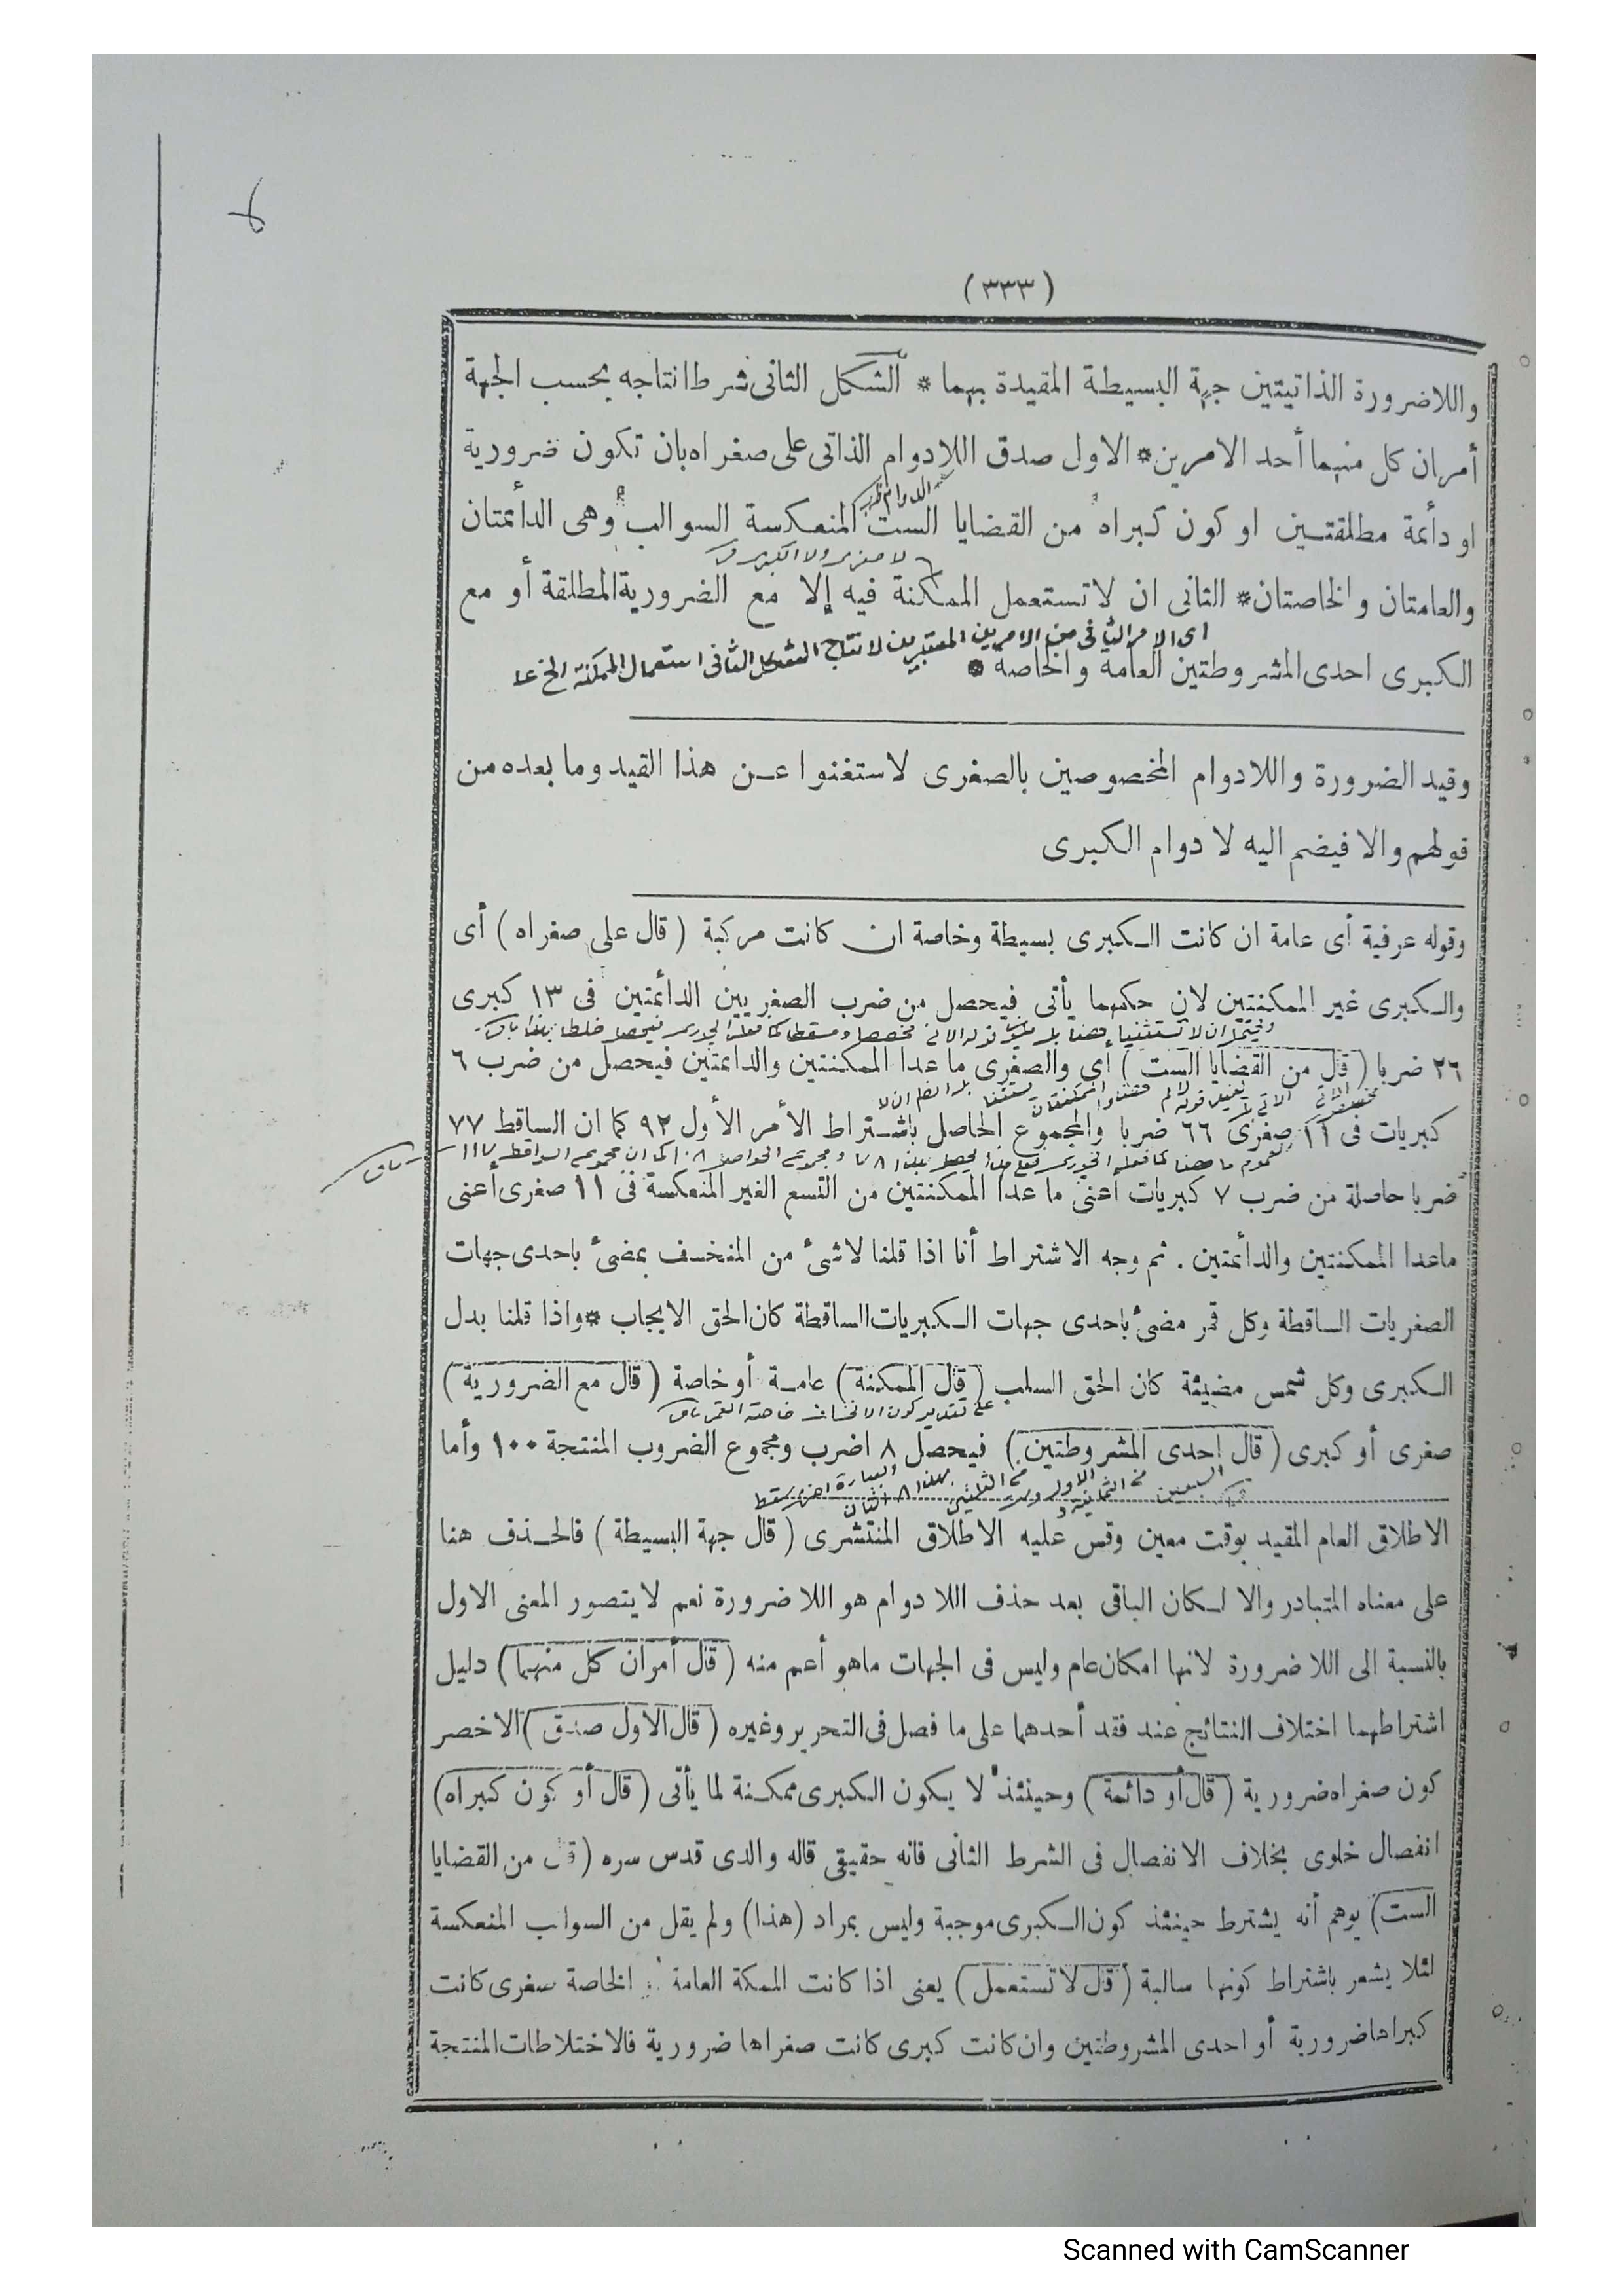 (٣٣٣)
واللاضرورة الذاتيتين جهة البسيطة المقيدة بهما * الشكل الثانى شرط انتاجه بحسب الجهة
أمران كل منهما أحد الامرين * الاول صدق اللادوام الذاتى على صغراه بان تكون ضرورية
او دائمة مطلقتين او كون كبراه من القضايا الست المنعكسة السوالب وهى الدائمتان
والعامتان والخاصتان * الثانى ان لا تستعمل الممكنة فيه إلا مع الضرورية المطلقة أو مع
اى الامر الثانى من الامرين المعتبرين لانتاج الشكل الثانى استعمال الممكنة الخ
الكبرى احدى المشروطتين العامة والخاصة *
وقيد الضرورة واللادوام المخصوصين بالصغرى لاستغنوا عن هذا القيد وما بعده من
قولهم والا فيضم اليه لا دوام الكبرى
وقوله عرفية أى عامة ان كانت الكبرى بسيطة وخاصة ان كانت مركبة (قال على صغراه) أى
والكبرى غير الممكنتين لان حكمهما يأتى فيحصل من ضرب الصغريين الدائمتين فى ١٣ كبرى
٢٦ ضربا (قال من القضايا الست) أى والصغرى ما عدا الممكنتين والدائمتين فيحصل من ضرب ٦
كبريات فى ١١ صغرى ٦٦ ضربا والمجموع الحاصل باشتراط الأمر الأول ٩٢ كما ان الساقط ٧٧
ضربا حاصلة من ضرب ٧ كبريات أعنى ما عدا الممكنتين من التسع الغير المنعكسة فى ١١ صغرى أعنى
ماعدا الممكنتين والدائمتين . ثم وجه الاشتراط أنا اذا قلنا لاشئ من المنخسف بمضئ باحدى جهات
الصغريات الساقطة وكل قمر مضئ باحدى جهات الكبريات الساقطة كان الحق الايجاب * واذا قلنا بدل
الكبرى وكل شمس مضيئة كان الحق السلب (قال الممكنة) عامة أو خاصة (قال مع الضرورية)
على تقدير كون الانخساف خاصة القمر
صغرى أو كبرى (قال احدى المشروطتين) فيحصل ٨ اضرب ومجموع الضروب المنتجة ١٠٠ وأما
الاطلاق العام المقيد بوقت معين وقس عليه الاطلاق المنتشرى (قال جهة البسيطة) فالحذف هنا
على معناه المتبادر والا لكان الباقى بعد حذف اللا دوام هو اللا ضرورة نعم لا يتصور المعنى الاول
بالنسبة الى اللا ضرورة لانها امكان عام وليس فى الجهات ماهو أعم منه (قال أمران كل منهما) دليل
اشتراطهما اختلاف النتائج عند فقد أحدهما على ما فصل فى التحرير وغيره (قال الاول صدق) الاخصر
كون صغراه ضرورية (قال أو دائمة) وحينئذ لا يكون الكبرى ممكنة لما يأتى (قال أو كون كبراه)
انفصال خلوى بخلاف الانفصال فى الشرط الثانى فانه حقيقى قاله والدى قدس سره (قال من القضايا
الست) يوهم أنه يشترط حينئذ كون الكبرى موجبة وليس بمراد (هذا) ولم يقل من السوالب المنعكسة
لئلا يشعر باشتراط كونها سالبة (قال لا تستعمل) يعنى اذا كانت الممكنة العامة الخاصة صغرى كانت
كبراها ضرورية أو احدى المشروطتين وان كانت كبرى كانت صغراها ضرورية فالاختلاطات المنتجة
Scanned with CamScanner